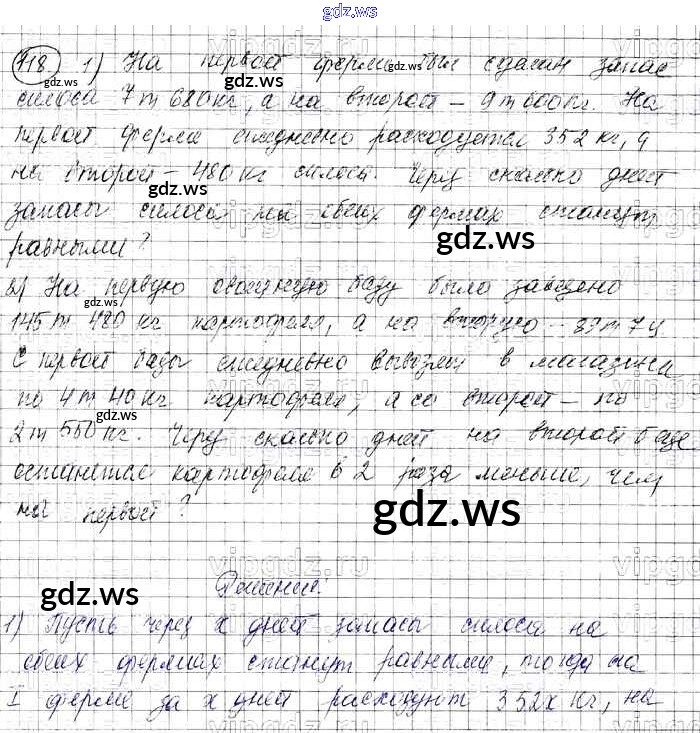 gdz.ws
118 1) На первой ферме был сделан запас
силоса 7т 680кг, а на второй – 9т 600кг. На
первой ферме ежедневно расходуется 352 кг, а
на второй – 480 кг силоса. Через сколько дней
запасы силоса на обеих фермах станут
равными?
2) На первую овощную базу было завезено
145т 480 кг картофеля, а на вторую – 89т 7ц
С первой базы ежедневно вывозят в магазины
по 4т 40кг картофеля, а со второй – по
2т 550кг. Через сколько дней на второй базе
останется картофеля в 2 раза меньше, чем
на первой?
gdz.ws
Решение:
gdz.ws
1) Пусть через х дней запасы силоса на
обеих фермах станут равными, тогда на
I ферме за х дней расходуют 352х кг, на